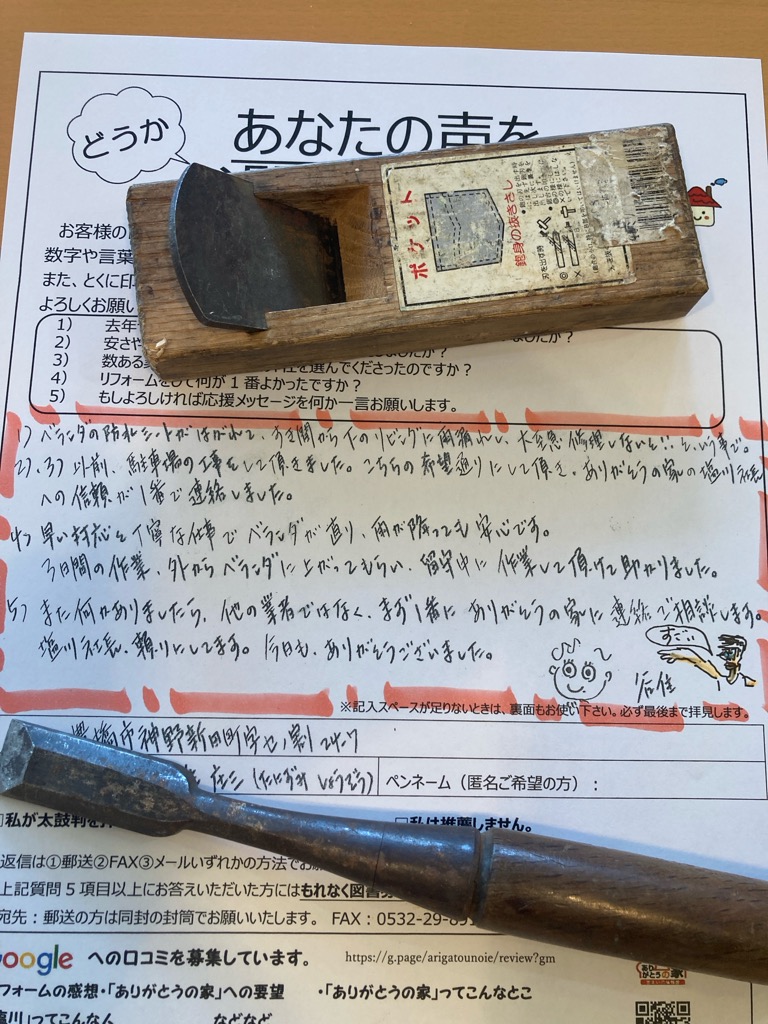 どうか
あなたの声を
お客様の
数字や言葉
また、とくに印
よろしくお願い
1） 去年
2） 安さや
でしたか？
3） 数ある
を選んでくださったのですか？
4） リフォームをして何が１番よかったですか？
5） もしよろしければ応援メッセージを何か一言お願いします。
ポケット
鉋身の抜きさし
刃を出す時
1） ベランダの防水シートがはがれて、すき間から下のリビングに雨漏れし、大至急修理しないと!! という事で。
2）、3） 以前、駐車場の工事をして頂きました。こちらの希望通りにして頂き、ありがとうの家の塩川社長
への信頼が1番で連絡しました。
4） 早い対応と丁寧な仕事でベランダが直り、雨が降っても安心です。
3日間の作業、外からベランダに上がってもらい、留守中に作業して頂けて助かりました。
5） また何かありましたら、他の業者ではなく、まず1番にありがとうの家に連絡ご相談します。
塩川社長、頼りにしてます。今日も、ありがとうございました。
谷住
※記入スペースが足りないときは、裏面もお使い下さい。必ず最後まで拝見します。
橋市神野新田町字セノ割
庄三（たにずみ しょうぞう）
ペンネーム（匿名ご希望の方）：
私が太鼓判を
□私は推薦しません。
返信は①郵送②FAX③メールいずれかの方法でお
上記質問５項目以上にお答えいただいた方にはもれなく図書
宛先：郵送の方は同封の封筒でお願いいたします。 FAX：0532-29-89
oogle への口コミを募集しています。
https://g.page/arigatounoie/review?gm
フォームの感想・「ありがとうの家」への要望
・「ありがとうの家」ってこんなとこ
塩川」ってこんな人
などなど
ありがとうの家